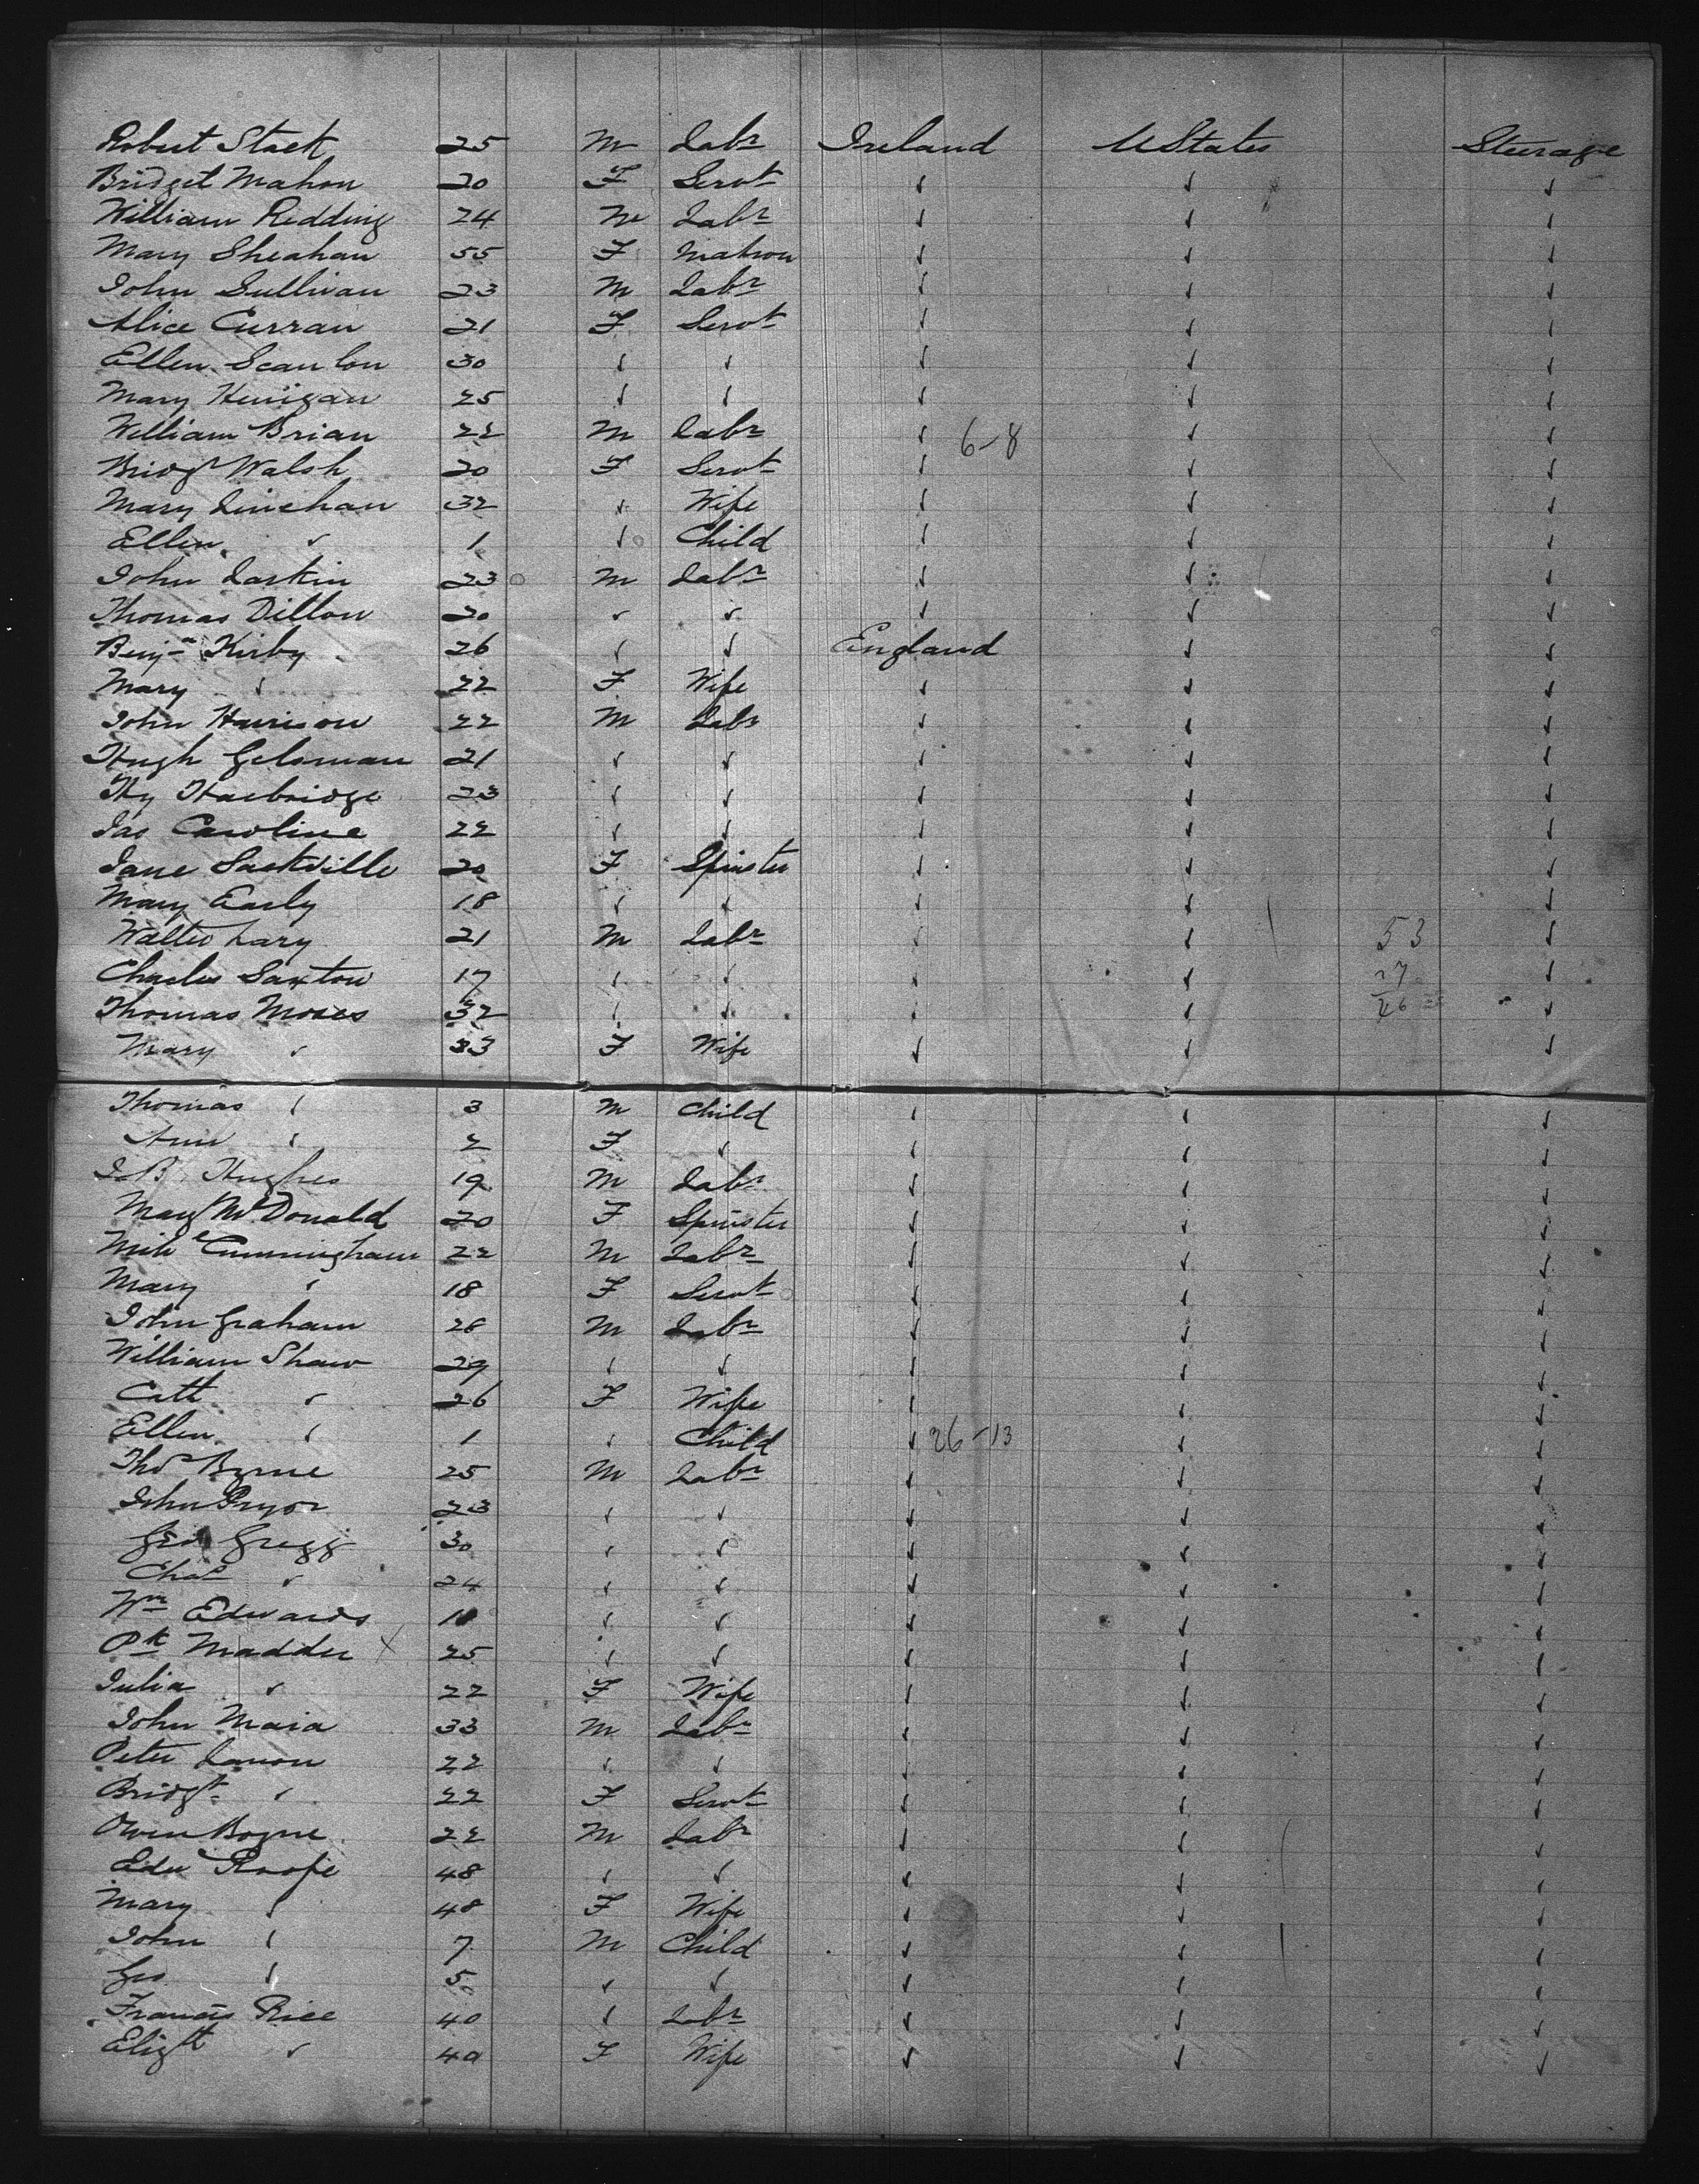 Robert Stack 25 M Labr Ireland UStates Steerage
Bridget Mahon 20 F Servt ✓ ✓ ✓
William Redding 24 M Labr ✓ ✓ ✓
Mary Sheahan 55 F Matron ✓ ✓ ✓
John Sullivan 23 M Labr ✓ ✓ ✓
Alice Curran 21 F Servt ✓ ✓ ✓
Ellen Scanlon 30 ✓ ✓ ✓ ✓ ✓
Mary Hinigan 25 ✓ ✓ ✓ ✓ ✓
William Brian 22 M Labr ✓ 6-8 ✓ ✓
Bridgt Walsh 20 F Servt ✓ ✓ ✓
Mary Linehan 32 ✓ Wife ✓ ✓ ✓
Ellen ✓ 1 ✓ Child ✓ ✓ ✓
John Larkin 23 M Labr ✓ ✓ ✓
Thomas Dillon 20 ✓ ✓ ✓ ✓ ✓
Benjn Kirby 26 ✓ ✓ England ✓ ✓
Mary ✓ 22 F Wife ✓ ✓ ✓
John Harrison 22 M Labr ✓ ✓ ✓
Hugh Gelsman 21 ✓ ✓ ✓ ✓ ✓
Hy Harbridge 23 ✓ ✓ ✓ ✓ ✓
Jas Caroline 22 ✓ ✓ ✓ ✓ ✓
Jane Sackville 20 F Spinster ✓ ✓ ✓
Mary Early 18 ✓ ✓ ✓ ✓ ✓
Walter Lary 21 M Labr ✓ ✓ 53 ✓
Charles Saxton 17 ✓ ✓ ✓ ✓ 27 ✓
Thomas Moses 32 ✓ ✓ ✓ ✓ 26 ✓
Mary ✓ 33 F Wife ✓ ✓ ✓
Thomas ✓ 3 M Child ✓ ✓ ✓
Ann ✓ 2 F ✓ ✓ ✓ ✓
J.B. Hughes 19 M Labr ✓ ✓ ✓
Mary McDonald 20 F Spinster ✓ ✓ ✓
Michl Cunningham 22 M Labr ✓ ✓ ✓
Mary ✓ 18 F Servt ✓ ✓ ✓
John Graham 28 M Labr ✓ ✓ ✓
William Shaw 29 ✓ ✓ ✓ ✓ ✓
Cath ✓ 26 F Wife ✓ ✓ ✓
Ellen ✓ 1 ✓ Child ✓ 26-13 ✓ ✓
Thos Byrne 25 M Labr ✓ ✓ ✓
John Pryor 23 ✓ ✓ ✓ ✓ ✓
Geo Gregg 30 ✓ ✓ ✓ ✓ ✓
Chas ✓ 24 ✓ ✓ ✓ ✓ ✓
Wm Edwards ✓ ✓ ✓ ✓ ✓
Pk Madden X 25 ✓ ✓ ✓ ✓ ✓
Julia ✓ 22 F Wife ✓ ✓ ✓
John Maia 33 M Labr ✓ ✓ ✓
Peter Lanon 22 ✓ ✓ ✓ ✓ ✓
Bridgt ✓ 22 F Servt ✓ ✓ ✓
Owen Bogne 22 M Labr ✓ ✓ ✓
Edw Roofe 48 ✓ ✓ ✓ ✓ ✓
Mary ✓ 48 F Wife ✓ ✓ ✓
John ✓ 7 M Child ✓ ✓ ✓
Geo ✓ 5 ✓ ✓ ✓ ✓ ✓
Francis Rice 40 ✓ Labr ✓ ✓ ✓
Elizth ✓ 40 F Wife ✓ ✓ ✓